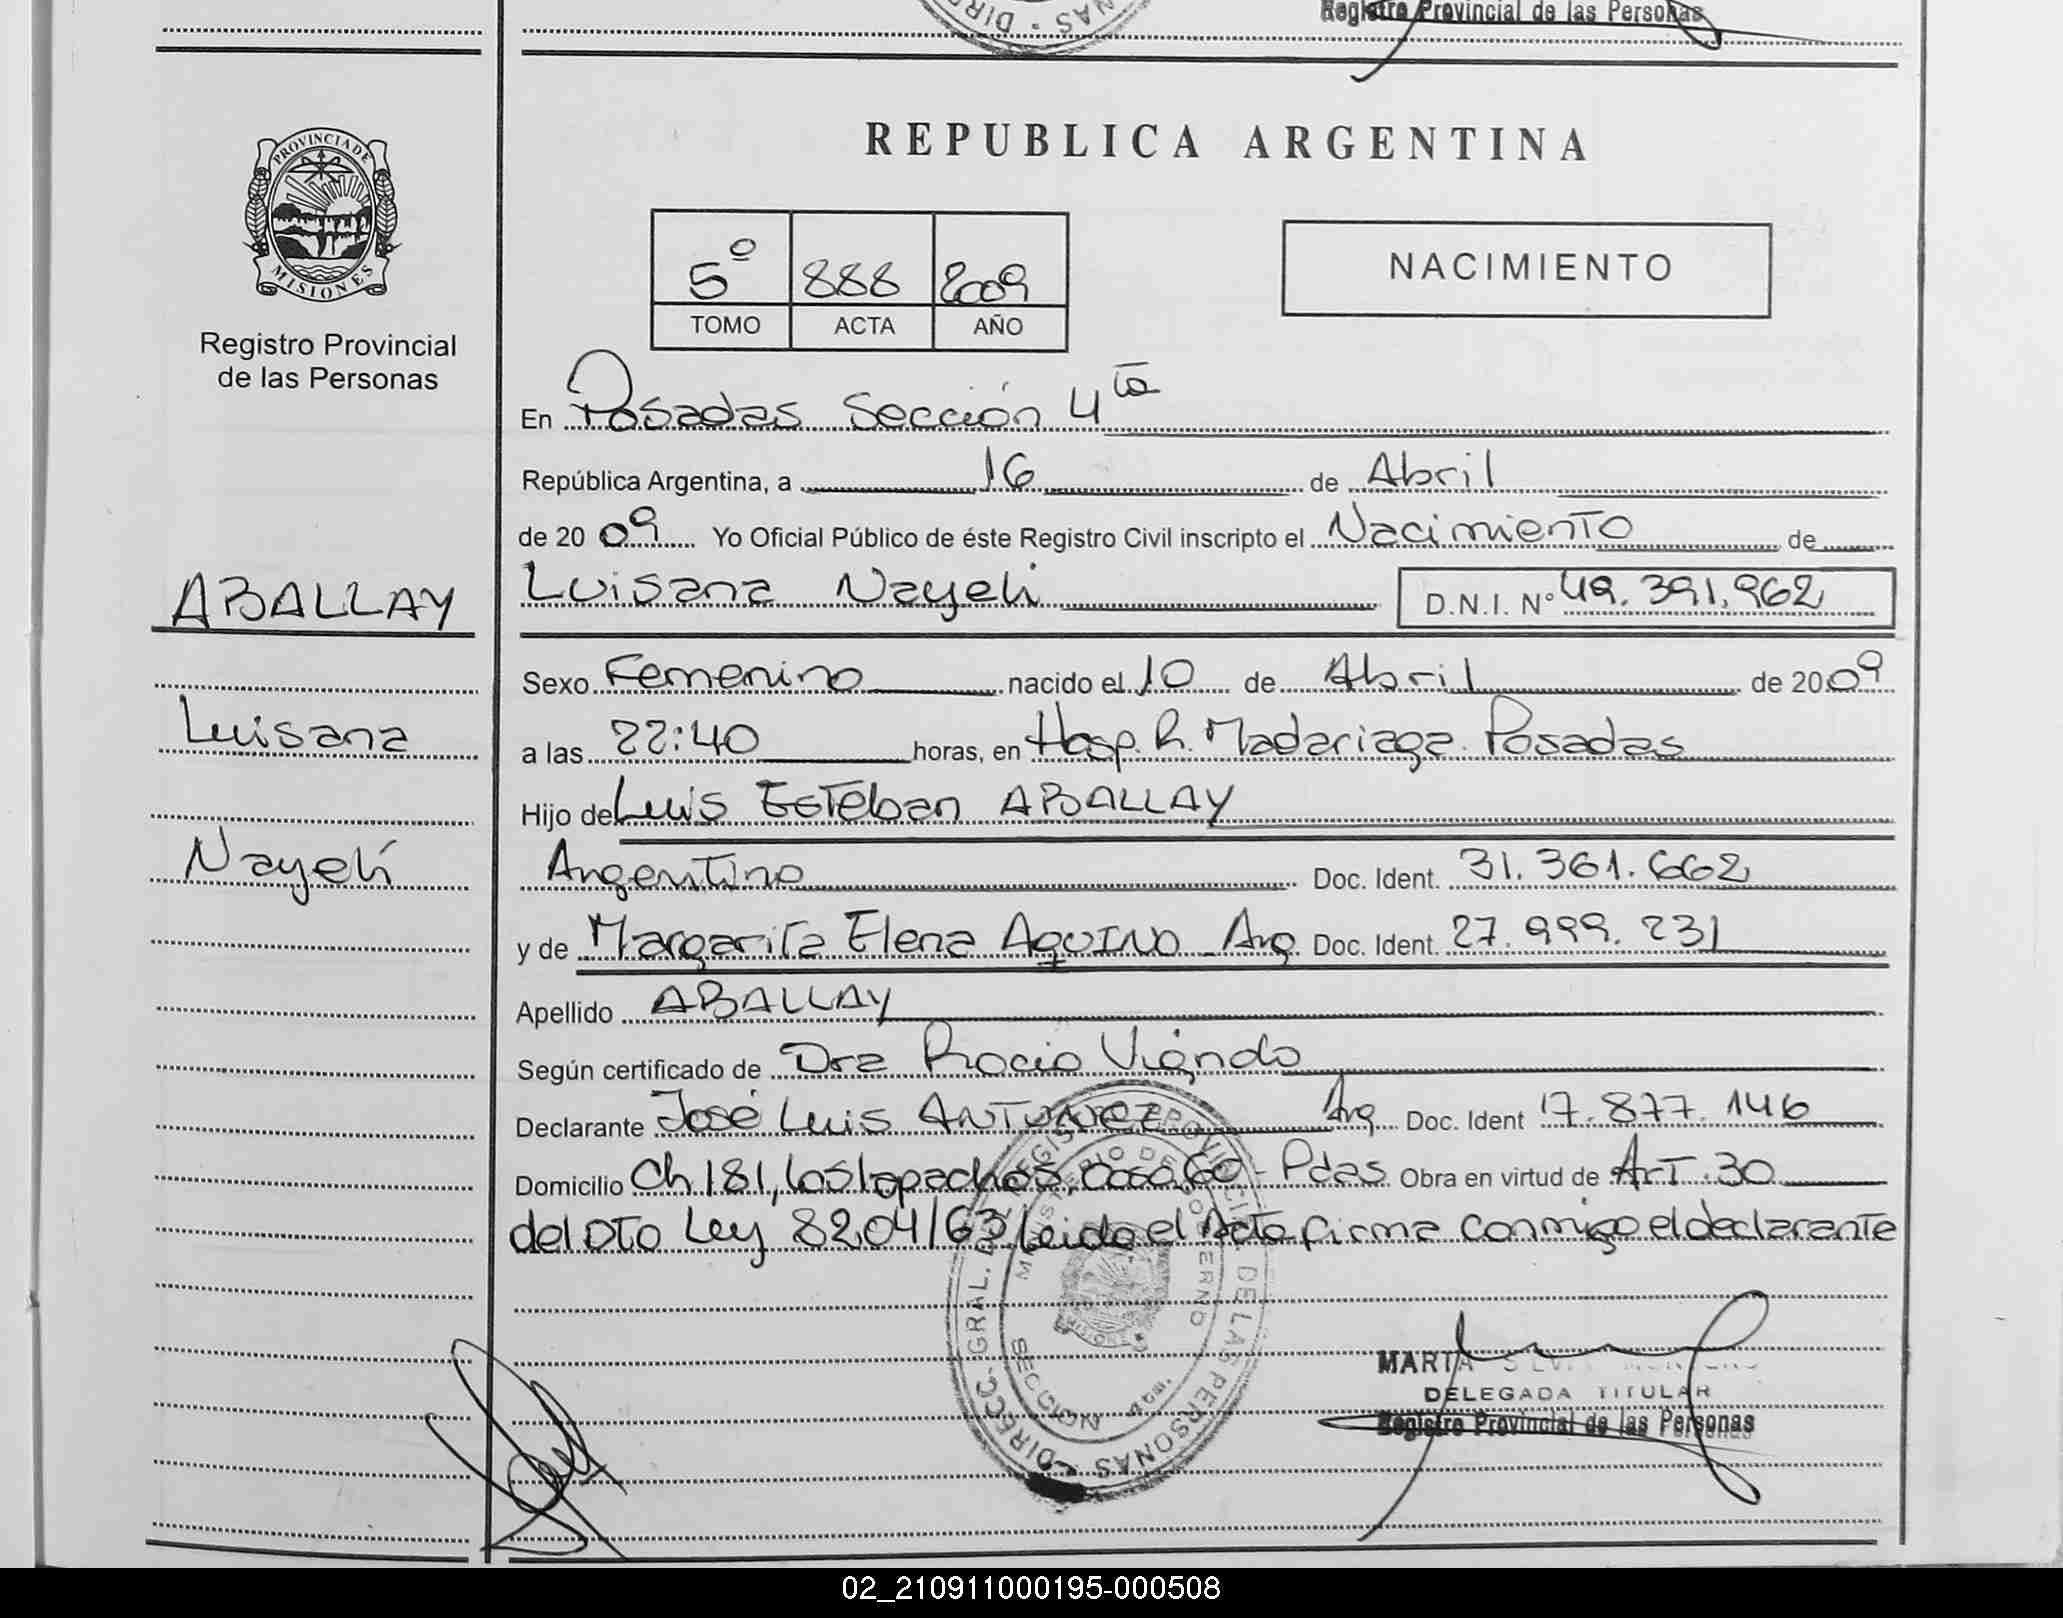 Registro Provincial de las Personas
REPUBLICA ARGENTINA
PROVINCIA DE
MISIONES
Registro Provincial
de las Personas
5º 888 2009
TOMO ACTA AÑO
NACIMIENTO
En Posadas Sección 4ta
República Argentina, a 16 de Abril
de 20 09 Yo Oficial Público de éste Registro Civil inscripto el Nacimiento de
ABALLAY
Luisana Nayelí D.N.I. Nº 49.391.962
Sexo Femenino nacido el 10 de Abril de 20 09
Luisana
a las 22:40 horas, en Hosp. R. Madariaga. Posadas
Hijo de Luis Esteban ABALLAY
Nayelí
Argentino Doc. Ident. 31.361.662
y de Margarita Elena AQUINO Arg. Doc. Ident. 27.999.231
Apellido ABALLAY
Según certificado de Dra Rocio
Declarante José Luis ANTUNEZ Arg. Doc. Ident 17.877.146
Domicilio Ch 181, Los lapachos, casa 60 - Pdas Obra en virtud de Art. 30
del DTO Ley 8204/63 Leido el Acta firma conmigo el declarante
DIRECC. GRAL. DE REGISTRO PROVINCIAL DE LAS PERSONAS
MINISTERIO DE GOBIERNO
MISIONES
SECCION 4ta.
MARTA
DELEGADA TITULAR
Registro Provincial de las Personas
02_210911000195-000508